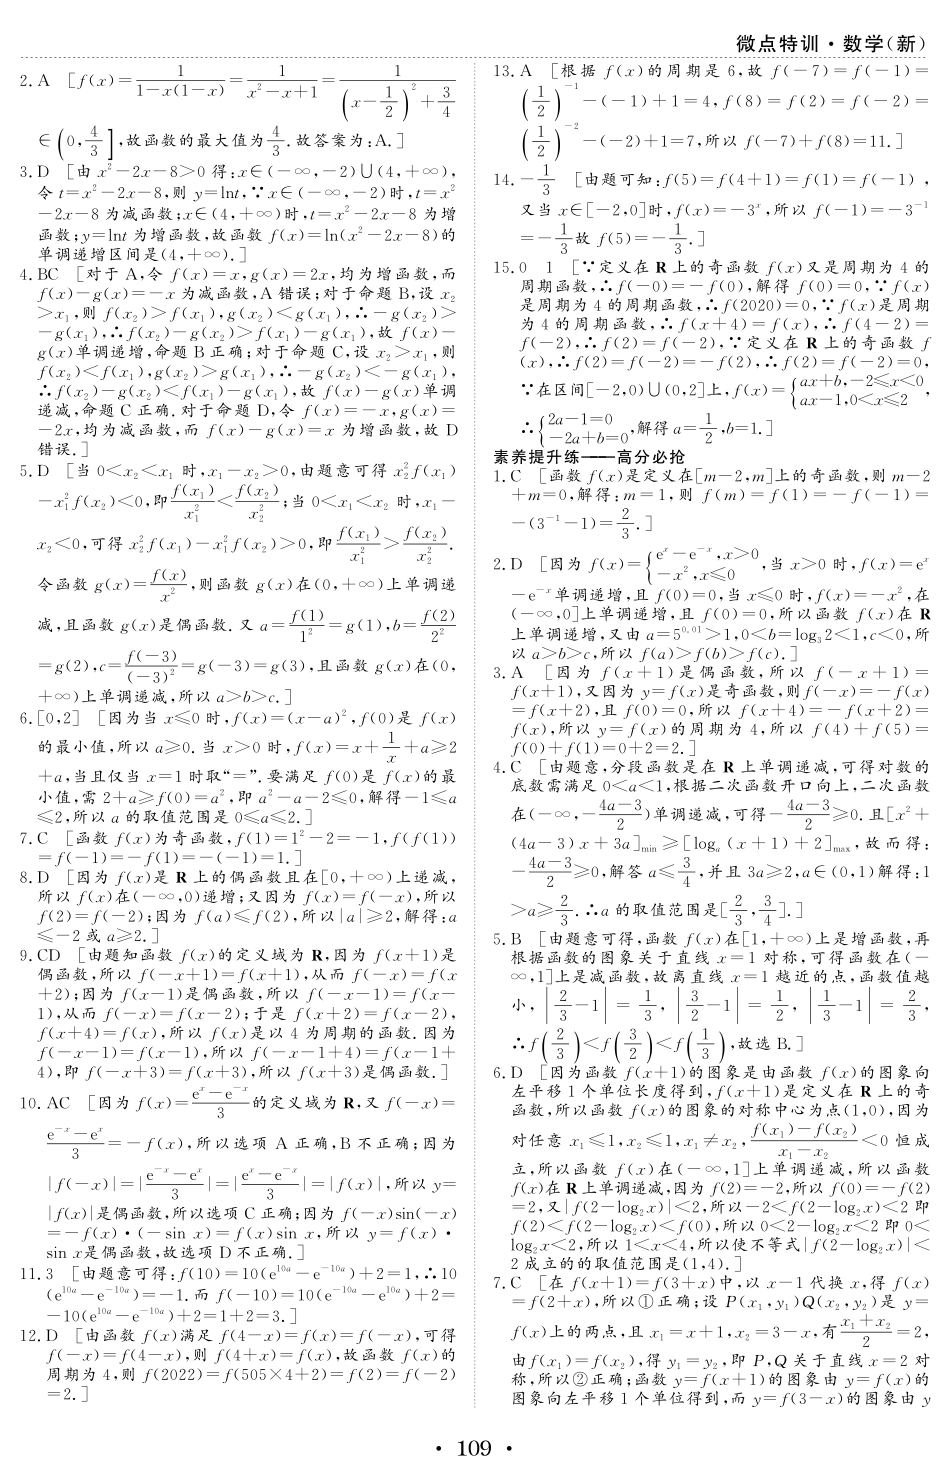 微点特训·数学(新)
2. A [f(x)=1/(1-x(1-x))=1/(x²-x+1)=1/((x-1/2)²+3/4)
∈(0,4/3],故函数的最大值为4/3.故答案为:A.]
3. D [由 x²-2x-8>0 得:x∈(-∞,-2)∪(4,+∞),
令 t=x²-2x-8,则 y=lnt,∵x∈(-∞,-2)时,t=x²
-2x-8 为减函数;x∈(4,+∞)时,t=x²-2x-8 为增
函数;y=lnt 为增函数,故函数 f(x)=ln(x²-2x-8)的
单调递增区间是(4,+∞).]
4. BC [对于 A,令 f(x)=x,g(x)=2x,均为增函数,而
f(x)-g(x)=-x 为减函数,A 错误;对于命题 B,设 x₂
>x₁,则 f(x₂)>f(x₁),g(x₂)<g(x₁),∴-g(x₂)>
-g(x₁),∴f(x₂)-g(x₂)>f(x₁)-g(x₁),故 f(x)-
g(x)单调递增,命题 B 正确;对于命题 C,设 x₂>x₁,则
f(x₂)<f(x₁),g(x₂)>g(x₁),∴-g(x₂)<-g(x₁),
∴f(x₂)-g(x₂)<f(x₁)-g(x₁),故 f(x)-g(x)单调
递减,命题 C 正确.对于命题 D,令 f(x)=-x,g(x)=
-2x,均为减函数,而 f(x)-g(x)=x 为增函数,故 D
错误.]
5. D [当 0<x₂<x₁ 时,x₁-x₂>0,由题意可得 x₂²f(x₁)
-x₁²f(x₂)<0,即f(x₁)/x₁²<f(x₂)/x₂²;当 0<x₁<x₂ 时,x₁-
x₂<0,可得 x₂²f(x₁)-x₁²f(x₂)>0,即f(x₁)/x₁²>f(x₂)/x₂².
令函数 g(x)=f(x)/x²,则函数 g(x)在(0,+∞)上单调递
减,且函数 g(x)是偶函数.又 a=f(1)/1²=g(1),b=f(2)/2²
=g(2),c=f(-3)/(-3)²=g(-3)=g(3),且函数 g(x)在(0,
+∞)上单调递减,所以 a>b>c.]
6. [0,2] [因为当 x≤0 时,f(x)=(x-a)²,f(0)是 f(x)
的最小值,所以 a≥0.当 x>0 时,f(x)=x+1/x+a≥2
+a,当且仅当 x=1 时取“=”.要满足 f(0)是 f(x)的最
小值,需 2+a≥f(0)=a²,即 a²-a-2≤0,解得-1≤a
≤2,所以 a 的取值范围是 0≤a≤2.]
7. C [函数 f(x)为奇函数,f(1)=1²-2=-1,f(f(1))
=f(-1)=-f(1)=-(-1)=1.]
8. D [因为 f(x)是 R 上的偶函数且在[0,+∞)上递减,
所以 f(x)在(-∞,0)递增;又因为 f(x)=f(-x),所以
f(2)=f(-2);因为 f(a)≤f(2),所以|a|≥2,解得:a
≤-2 或 a≥2.]
9. CD [由题知函数 f(x)的定义域为 R,因为 f(x+1)是
偶函数,所以 f(-x+1)=f(x+1),从而 f(-x)=f(x
+2);因为 f(x-1)是偶函数,所以 f(-x-1)=f(x-
1),从而 f(-x)=f(x-2);于是 f(x+2)=f(x-2),
f(x+4)=f(x),所以 f(x)是以 4 为周期的函数.因为
f(-x-1)=f(x-1),所以 f(-x-1+4)=f(x-1+
4),即 f(-x+3)=f(x+3),所以 f(x+3)是偶函数.]
10. AC [因为 f(x)=(eˣ-e⁻ˣ)/3的定义域为 R,又 f(-x)=
(e⁻ˣ-eˣ)/3=-f(x),所以选项 A 正确,B 不正确;因为
|f(-x)|=|(e⁻ˣ-eˣ)/3|=|(eˣ-e⁻ˣ)/3|=|f(x)|,所以 y=
|f(x)|是偶函数,所以选项 C 正确;因为 f(-x)sin(-x)
=-f(x)·(-sin x)=f(x)sin x,所以 y=f(x)·
sin x是偶函数,故选项 D 不正确.]
11. 3 [由题意可得:f(10)=10(e¹⁰ᵃ-e⁻¹⁰ᵃ)+2=1,∴10
(e¹⁰ᵃ-e⁻¹⁰ᵃ)=-1.而 f(-10)=10(e⁻¹⁰ᵃ-e¹⁰ᵃ)+2=
-10(e¹⁰ᵃ-e⁻¹⁰ᵃ)+2=1+2=3.]
12. D [由函数 f(x)满足 f(4-x)=f(x)=f(-x),可得
f(-x)=f(4-x),则 f(4+x)=f(x),故函数 f(x)的
周期为 4,则 f(2022)=f(505×4+2)=f(2)=f(-2)
=2.]
13. A [根据 f(x)的周期是 6,故 f(-7)=f(-1)=
(1/2)⁻¹-(-1)+1=4,f(8)=f(2)=f(-2)=
(1/2)⁻²-(-2)+1=7,所以 f(-7)+f(8)=11.]
14. -1/3 [由题可知:f(5)=f(4+1)=f(1)=f(-1),
又当 x∈[-2,0]时,f(x)=-3ˣ,所以 f(-1)=-3⁻¹
=-1/3故 f(5)=-1/3.]
15. 0 1 [∵定义在 R 上的奇函数 f(x)又是周期为 4 的
周期函数,∴f(-0)=-f(0),解得 f(0)=0,∵f(x)
是周期为 4 的周期函数,∴f(2020)=0,∵f(x)是周期
为 4 的周期函数,∴f(x+4)=f(x),∴f(4-2)=
f(-2),∴f(2)=f(-2),∵定义在 R 上的奇函数 f
(x),∴f(2)=f(-2)=-f(2),∴f(2)=f(-2)=0,
∵在区间[-2,0)∪(0,2]上,f(x)={ax+b,-2≤x<0 ax-1,0<x≤2,
∴{2a-1=0 -2a+b=0,解得 a=1/2,b=1.]
素养提升练——高分必抢
1. C [函数 f(x)是定义在[m-2,m]上的奇函数,则 m-2
+m=0,解得:m=1,则 f(m)=f(1)=-f(-1)=
-(3⁻¹-1)=2/3.]
2. D [因为 f(x)={eˣ-e⁻ˣ,x>0 -x²,x≤0,当 x>0 时,f(x)=eˣ
-e⁻ˣ单调递增,且 f(0)=0,当 x≤0 时,f(x)=-x²,在
(-∞,0]上单调递增,且 f(0)=0,所以函数 f(x)在 R
上单调递增,又由 a=5⁰·⁰¹>1,0<b=log₃2<1,c<0,所
以 a>b>c,所以 f(a)>f(b)>f(c).]
3. A [因为 f(x+1)是偶函数,所以 f(-x+1)=
f(x+1),又因为 y=f(x)是奇函数,则 f(-x)=-f(x)
=f(x+2),且 f(0)=0,所以 f(x+4)=-f(x+2)=
f(x),所以 y=f(x)的周期为 4,所以 f(4)+f(5)=
f(0)+f(1)=0+2=2.]
4. C [由题意,分段函数是在 R 上单调递减,可得对数的
底数需满足 0<a<1,根据二次函数开口向上,二次函数
在(-∞,-(4a-3)/2)单调递减,可得-(4a-3)/2≥0.且[x²+
(4a-3)x+3a]min≥[logₐ(x+1)+2]max,故而得:
-(4a-3)/2≥0,解答 a≤3/4,并且 3a≥2,a∈(0,1)解得:1
>a≥2/3.∴a 的取值范围是[2/3,3/4].]
5. B [由题意可得,函数 f(x)在[1,+∞)上是增函数,再
根据函数的图象关于直线 x=1 对称,可得函数在(-
∞,1]上是减函数,故离直线 x=1 越近的点,函数值越
小,|2/3-1|=1/3,|3/2-1|=1/2,|1/3-1|=2/3,
∴f(2/3)<f(3/2)<f(1/3),故选 B.]
6. D [因为函数 f(x+1)的图象是由函数 f(x)的图象向
左平移 1 个单位长度得到,f(x+1)是定义在 R 上的奇
函数,所以函数 f(x)的图象的对称中心为点(1,0),因为
对任意 x₁≤1,x₂≤1,x₁≠x₂,(f(x₁)-f(x₂))/(x₁-x₂)<0 恒成
立,所以函数 f(x)在(-∞,1]上单调递减,所以函数
f(x)在 R 上单调递减,因为 f(2)=-2,所以 f(0)=-f(2)
=2,又|f(2-log₂x)|<2,所以-2<f(2-log₂x)<2 即
f(2)<f(2-log₂x)<f(0),所以 0<2-log₂x<2 即 0<
log₂x<2,所以 1<x<4,所以使不等式|f(2-log₂x)|<
2 成立的的取值范围是(1,4).]
7. C [在 f(x+1)=f(3+x)中,以 x-1 代换 x,得 f(x)
=f(2+x),所以①正确;设 P(x₁,y₁)Q(x₂,y₂)是 y=
f(x)上的两点,且 x₁=x+1,x₂=3-x,有(x₁+x₂)/2=2,
由f(x₁)=f(x₂),得 y₁=y₂,即 P,Q 关于直线 x=2 对
称,所以②正确;函数 y=f(x+1)的图象由 y=f(x)的
图象向左平移 1 个单位得到,而 y=f(3-x)的图象由 y
· 109 ·